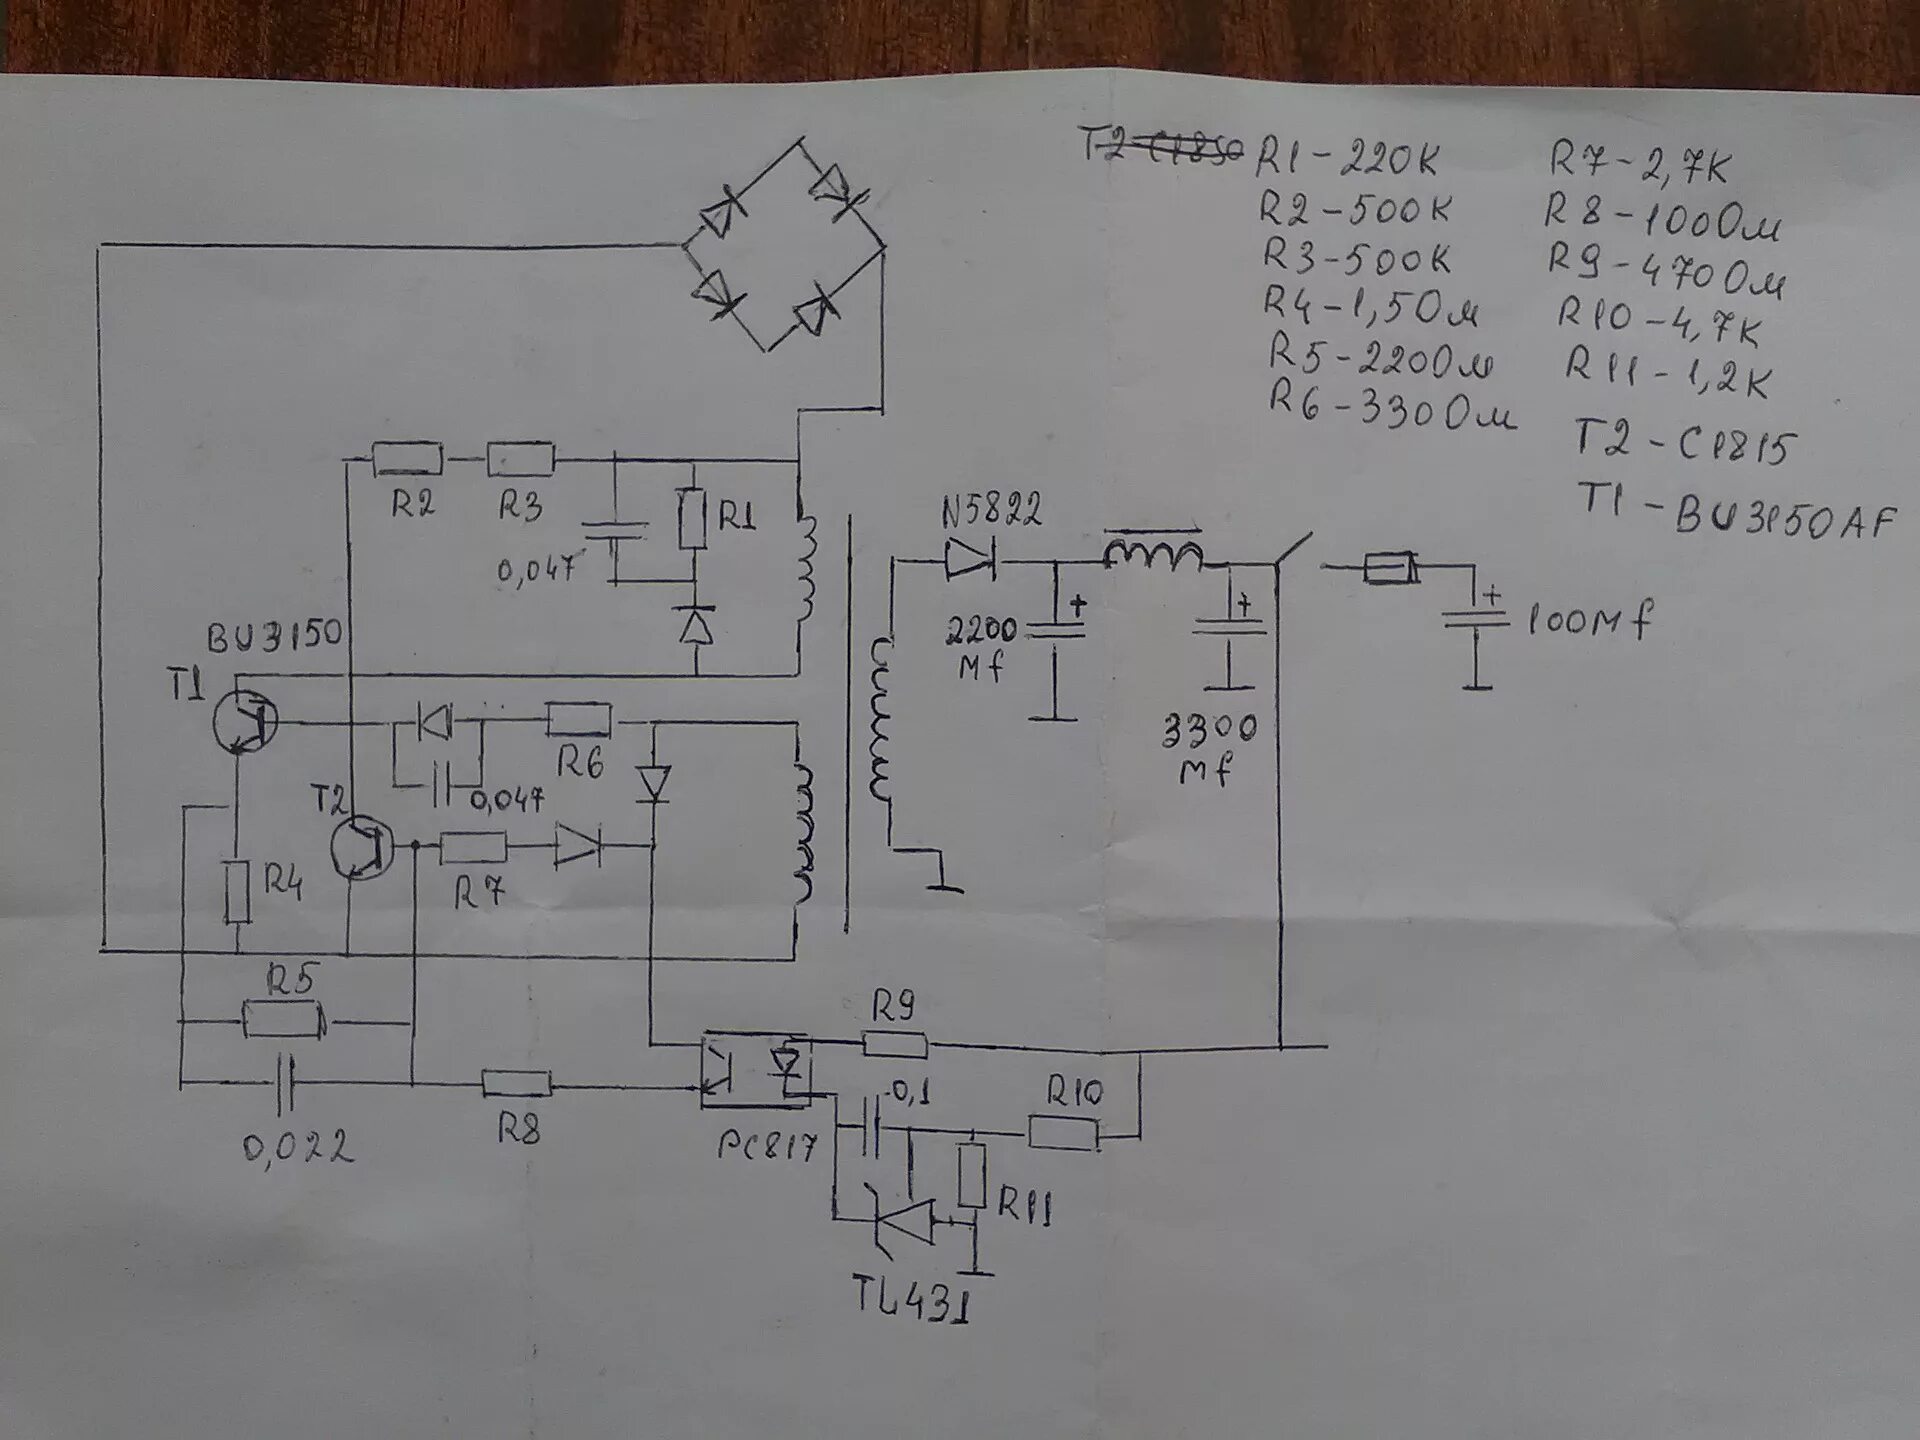 T2 C1850
R1-220К
R2-500К
R3-500К
R4-1,5Ом
R5-220Ом
R6-330Ом
R7-2,7К
R8-100Ом
R9-470Ом
R10-4,7К
R11-1,2К
T2-C1815
T1-BU3150AF
R2
R3
R1
0,047
N5822
2200
Mf
+
3300
Mf
+
+
100Mf
BU3150
T1
R6
0,047
T2
R4
R7
R5
R9
0,022
R8
PC817
0,1
R10
R11
TL431